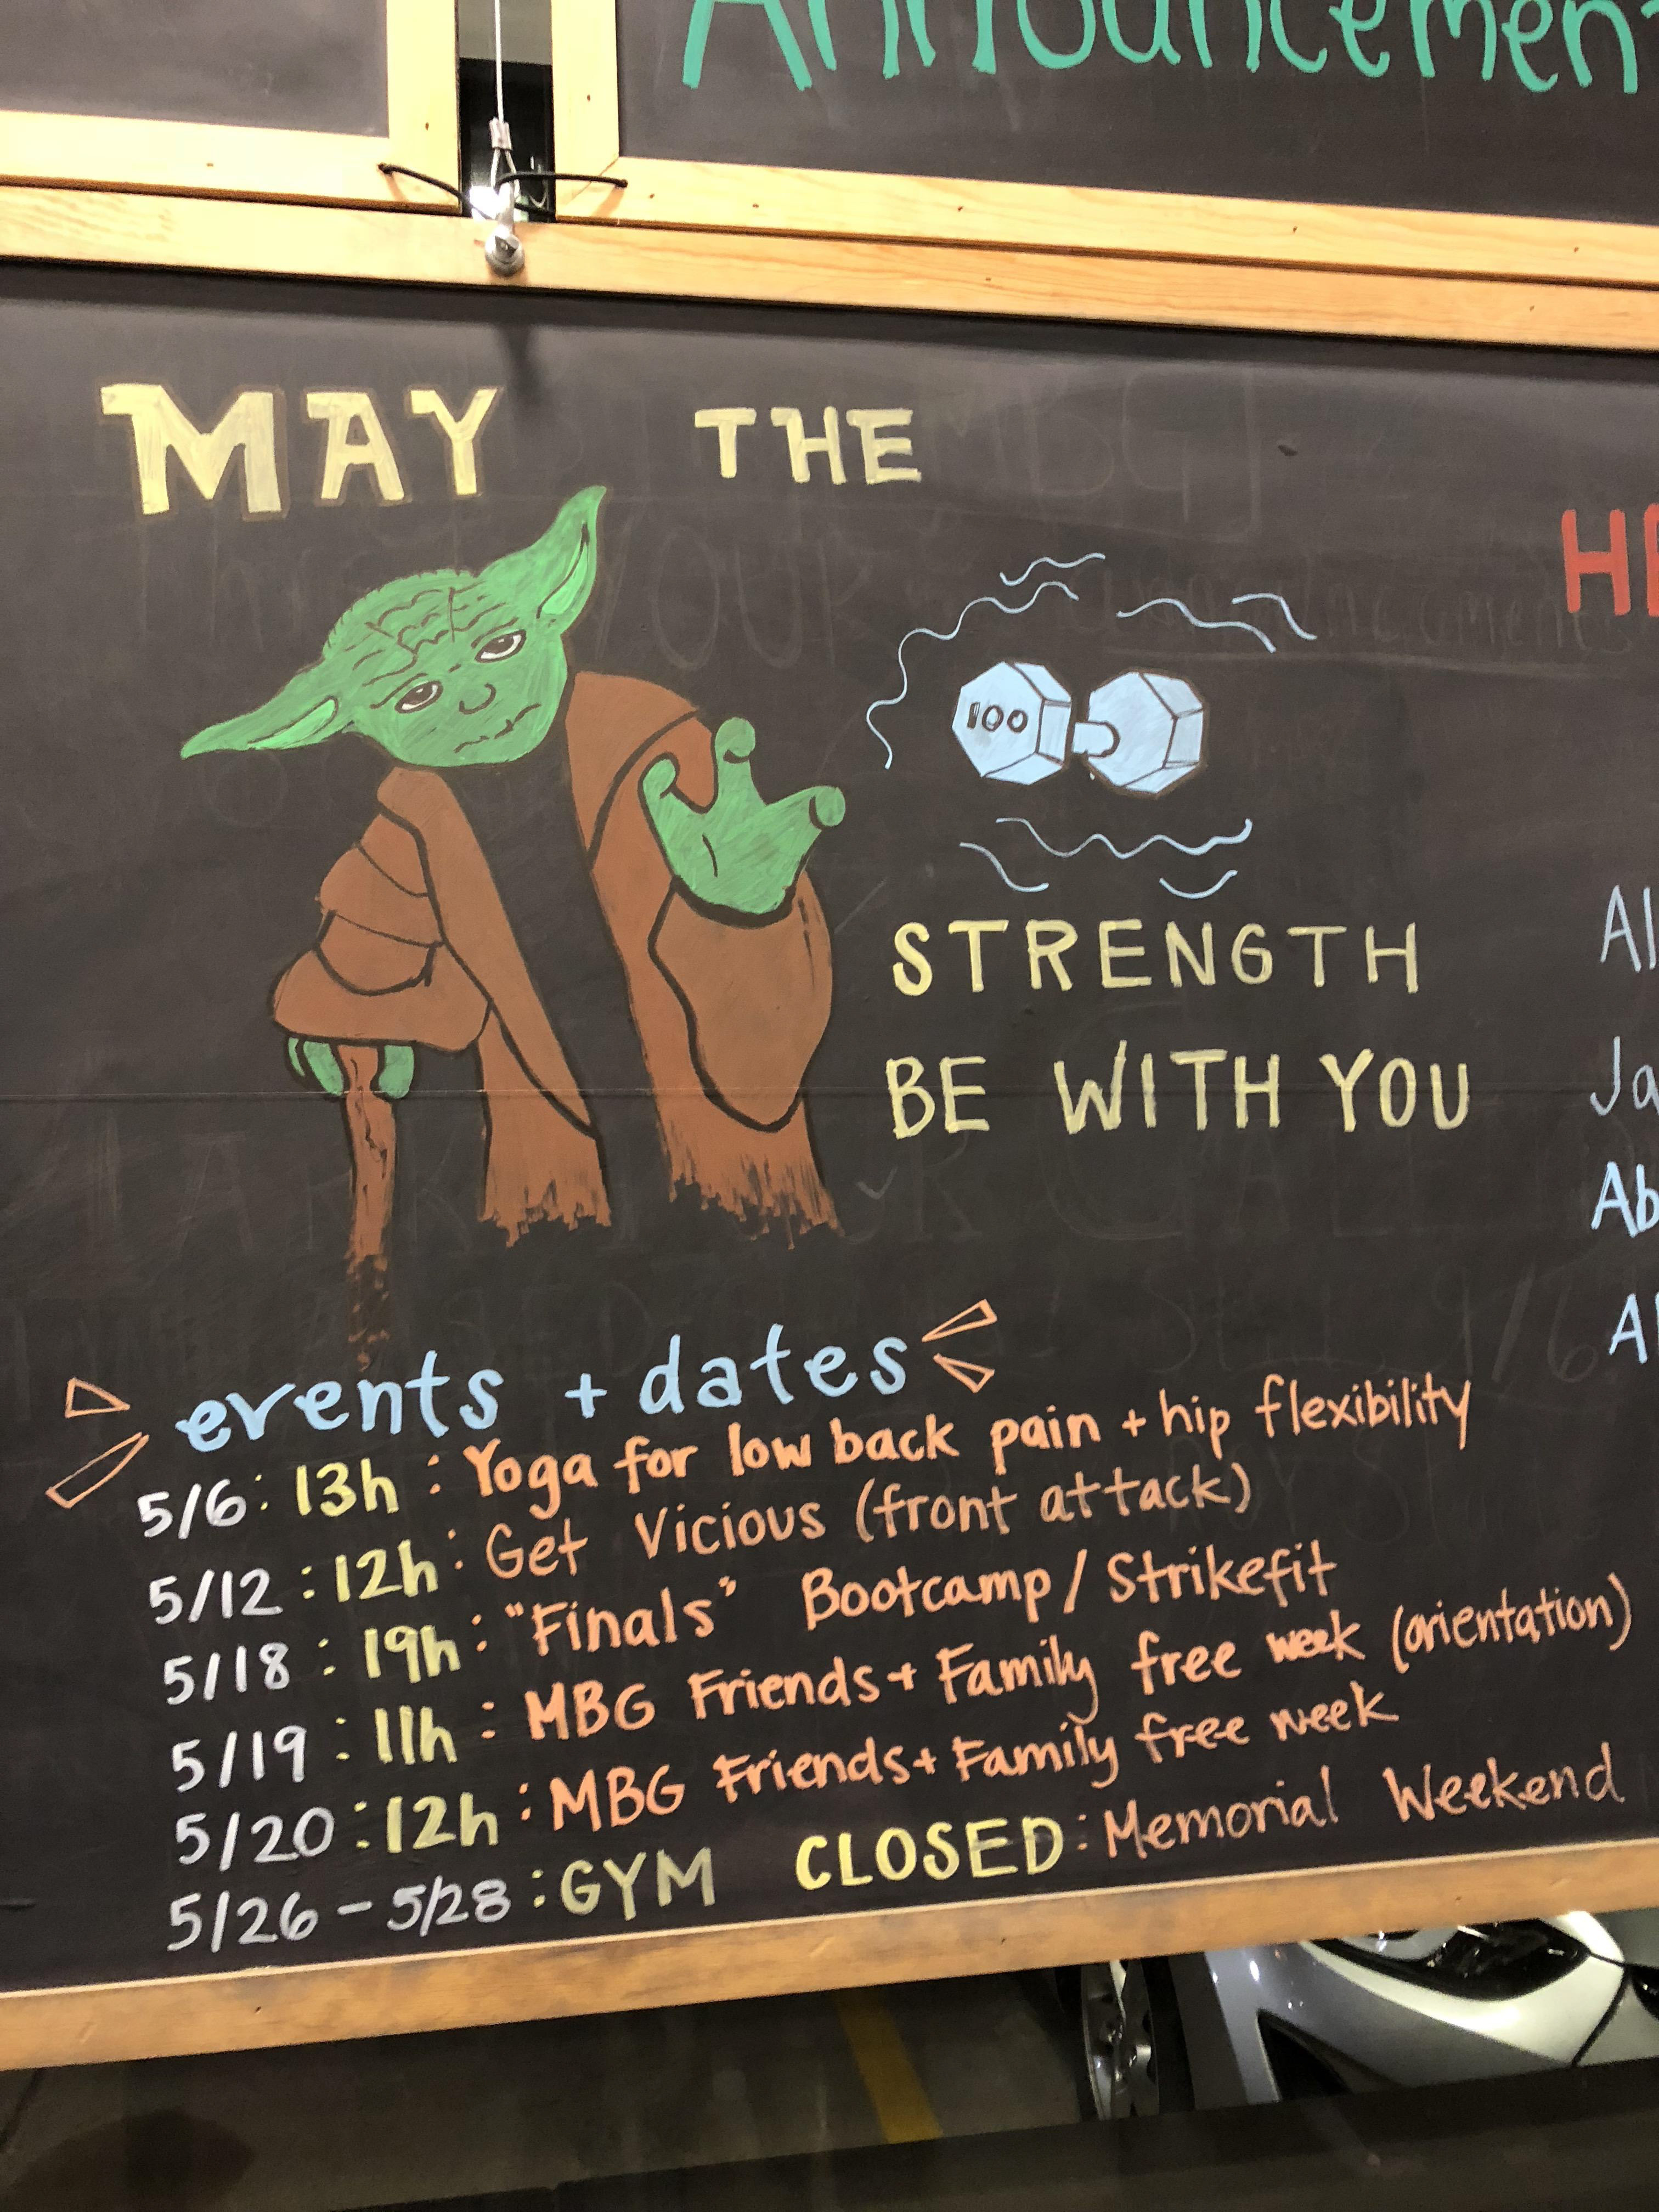 MAY THE
100
STRENGTH
BE WITH YOU
events + dates
5/6: 13h: Yoga for low back pain + hip flexibility
5/12: 12h: Get Vicious (front attack)
5/18: 19h: "Finals" Bootcamp/Strikefit
5/19: 11h: MBG Friends + Family free week (orientation)
5/20: 12h: MBG Friends + Family free week
5/26 - 5/28: GYM CLOSED: Memorial Weekend